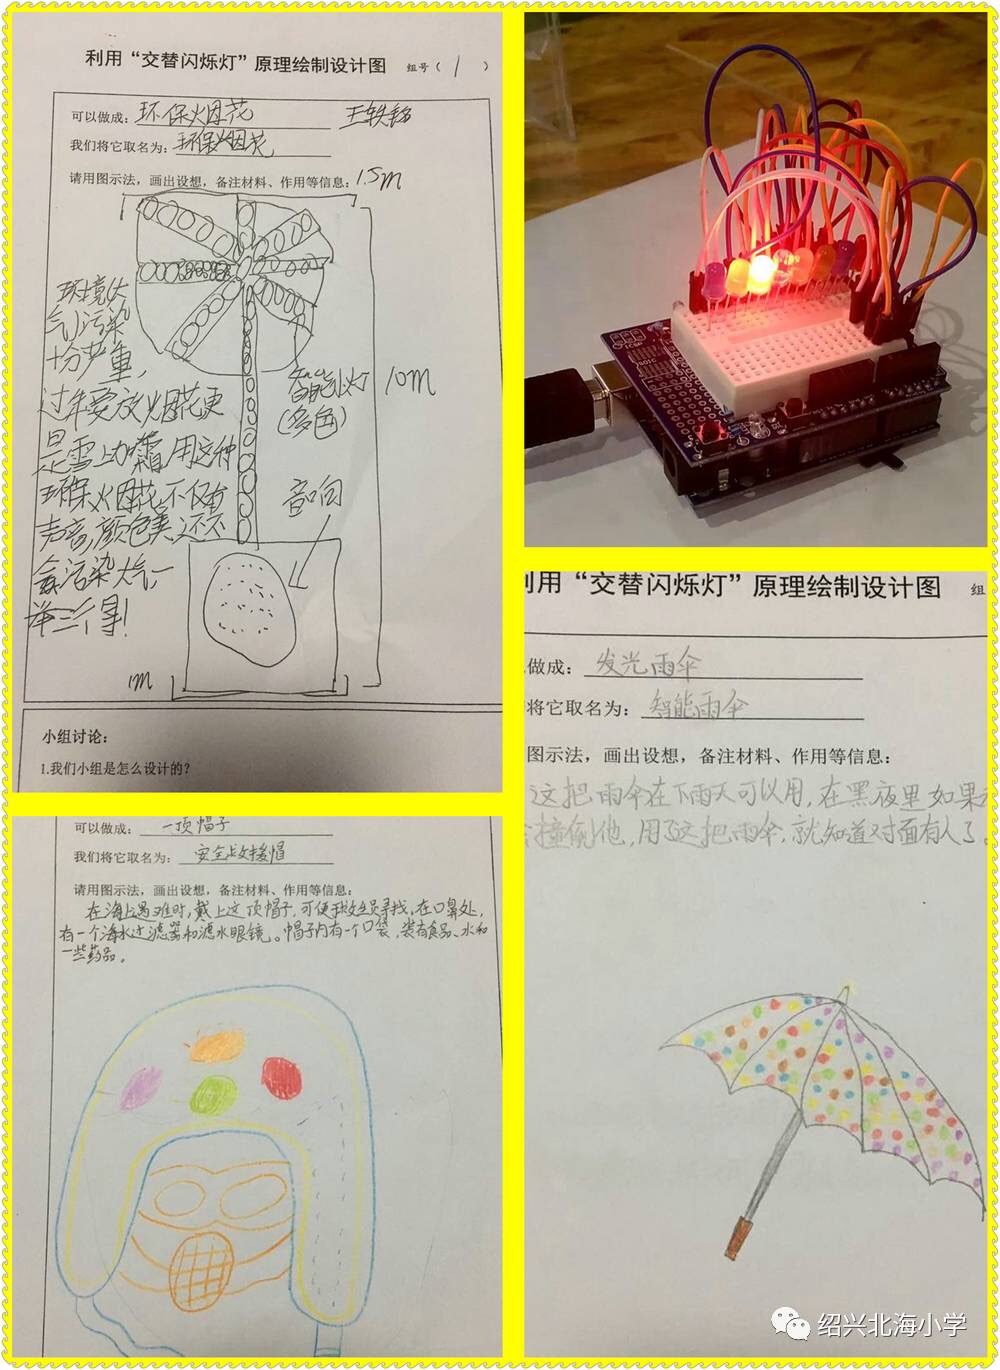 利用“交替闪烁灯”原理绘制设计图 组号（ 1 ）
可以做成：环保火烟花 王轶铭
我们将它取名为：环保火烟花
请用图示法，画出设想，备注材料、作用等信息：1.5m
环境大
气污染
十分严重，
过年要放火烟花更
是雪上加霜，用这种
环保火烟花不仅有
声音，颜色美，还不
会污染大气，一
举三得！
智能火灯
（多色）
10m
音响
1m
小组讨论：
1.我们小组是怎么设计的？
利用“交替闪烁灯”原理绘制设计图 组
做成：发光雨伞
将它取名为：智能雨伞
图示法，画出设想，备注材料、作用等信息：
这把雨伞在下雨天可以用，在黑夜里如果
撞倒他，用了这把雨伞，就知道对面有人了。
可以做成：一顶帽子
我们将它取名为：安全救援帽
请用图示法，画出设想，备注材料、作用等信息：
在海上遇难时，戴上这顶帽子，可便于救生员寻找。在口鼻处，
有一个海水过滤器和滤水眼镜。帽子内有一个口袋，装有食品、水和
一些药品。
绍兴北海小学